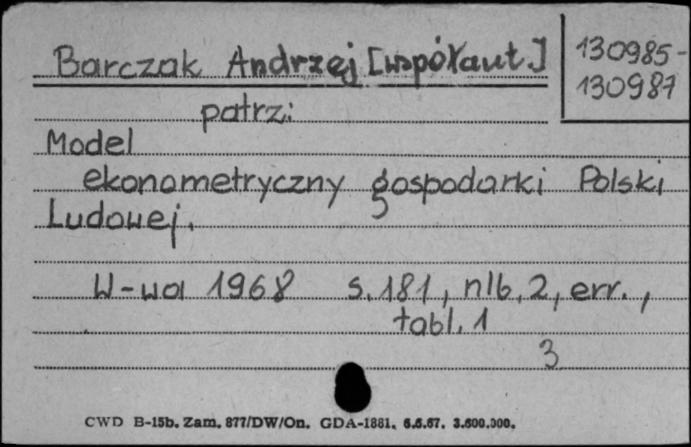 Barczak Andrzej [współaut.]
130985-
130987
patrz:
Model
ekonometryczny gospodarki Polski
Ludowej.
W-wa 1968 s. 181, nlb. 2, err.,
tabl. 1
3
CWD B-15b. Zam. 877/DW/On. GDA-1881. 6.6.67. 3.600.000.